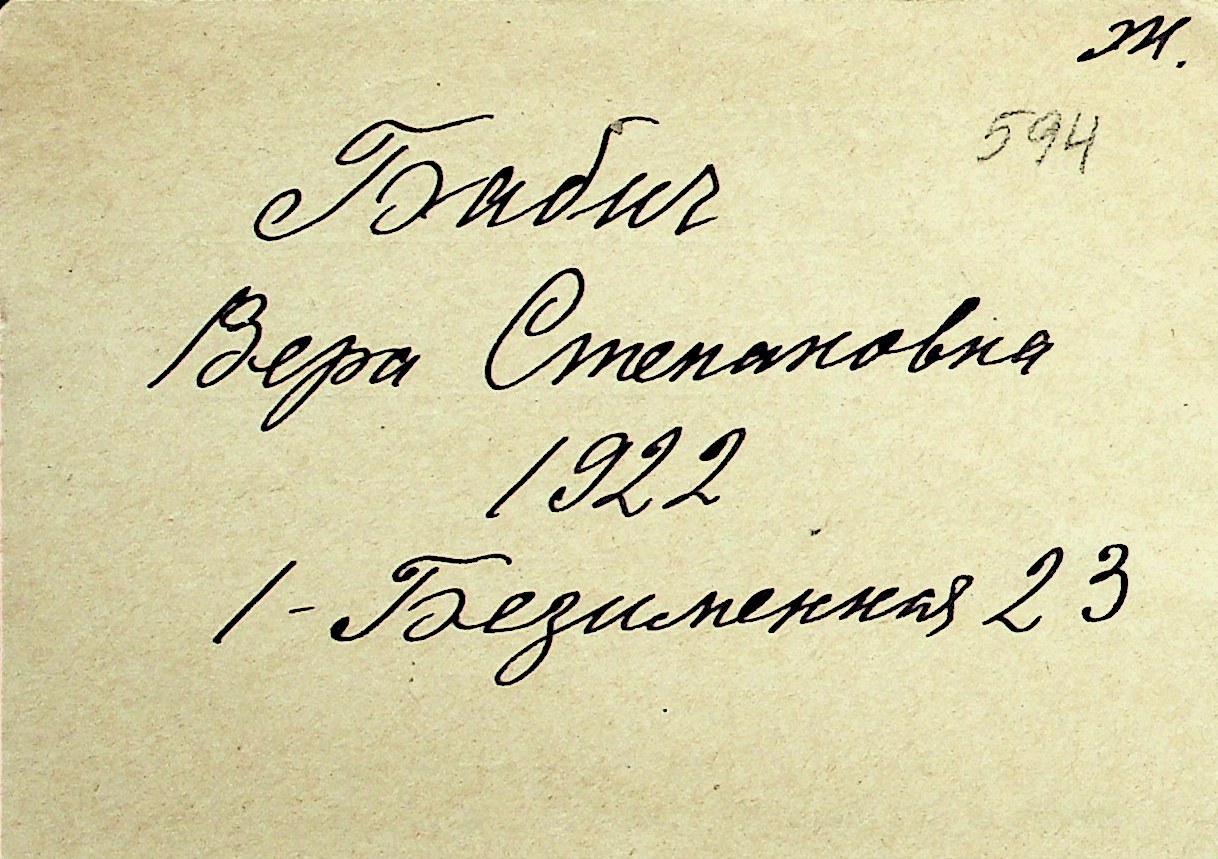 ж.
594
Бабич
Вера Степановна
1922
1-Безименная 23